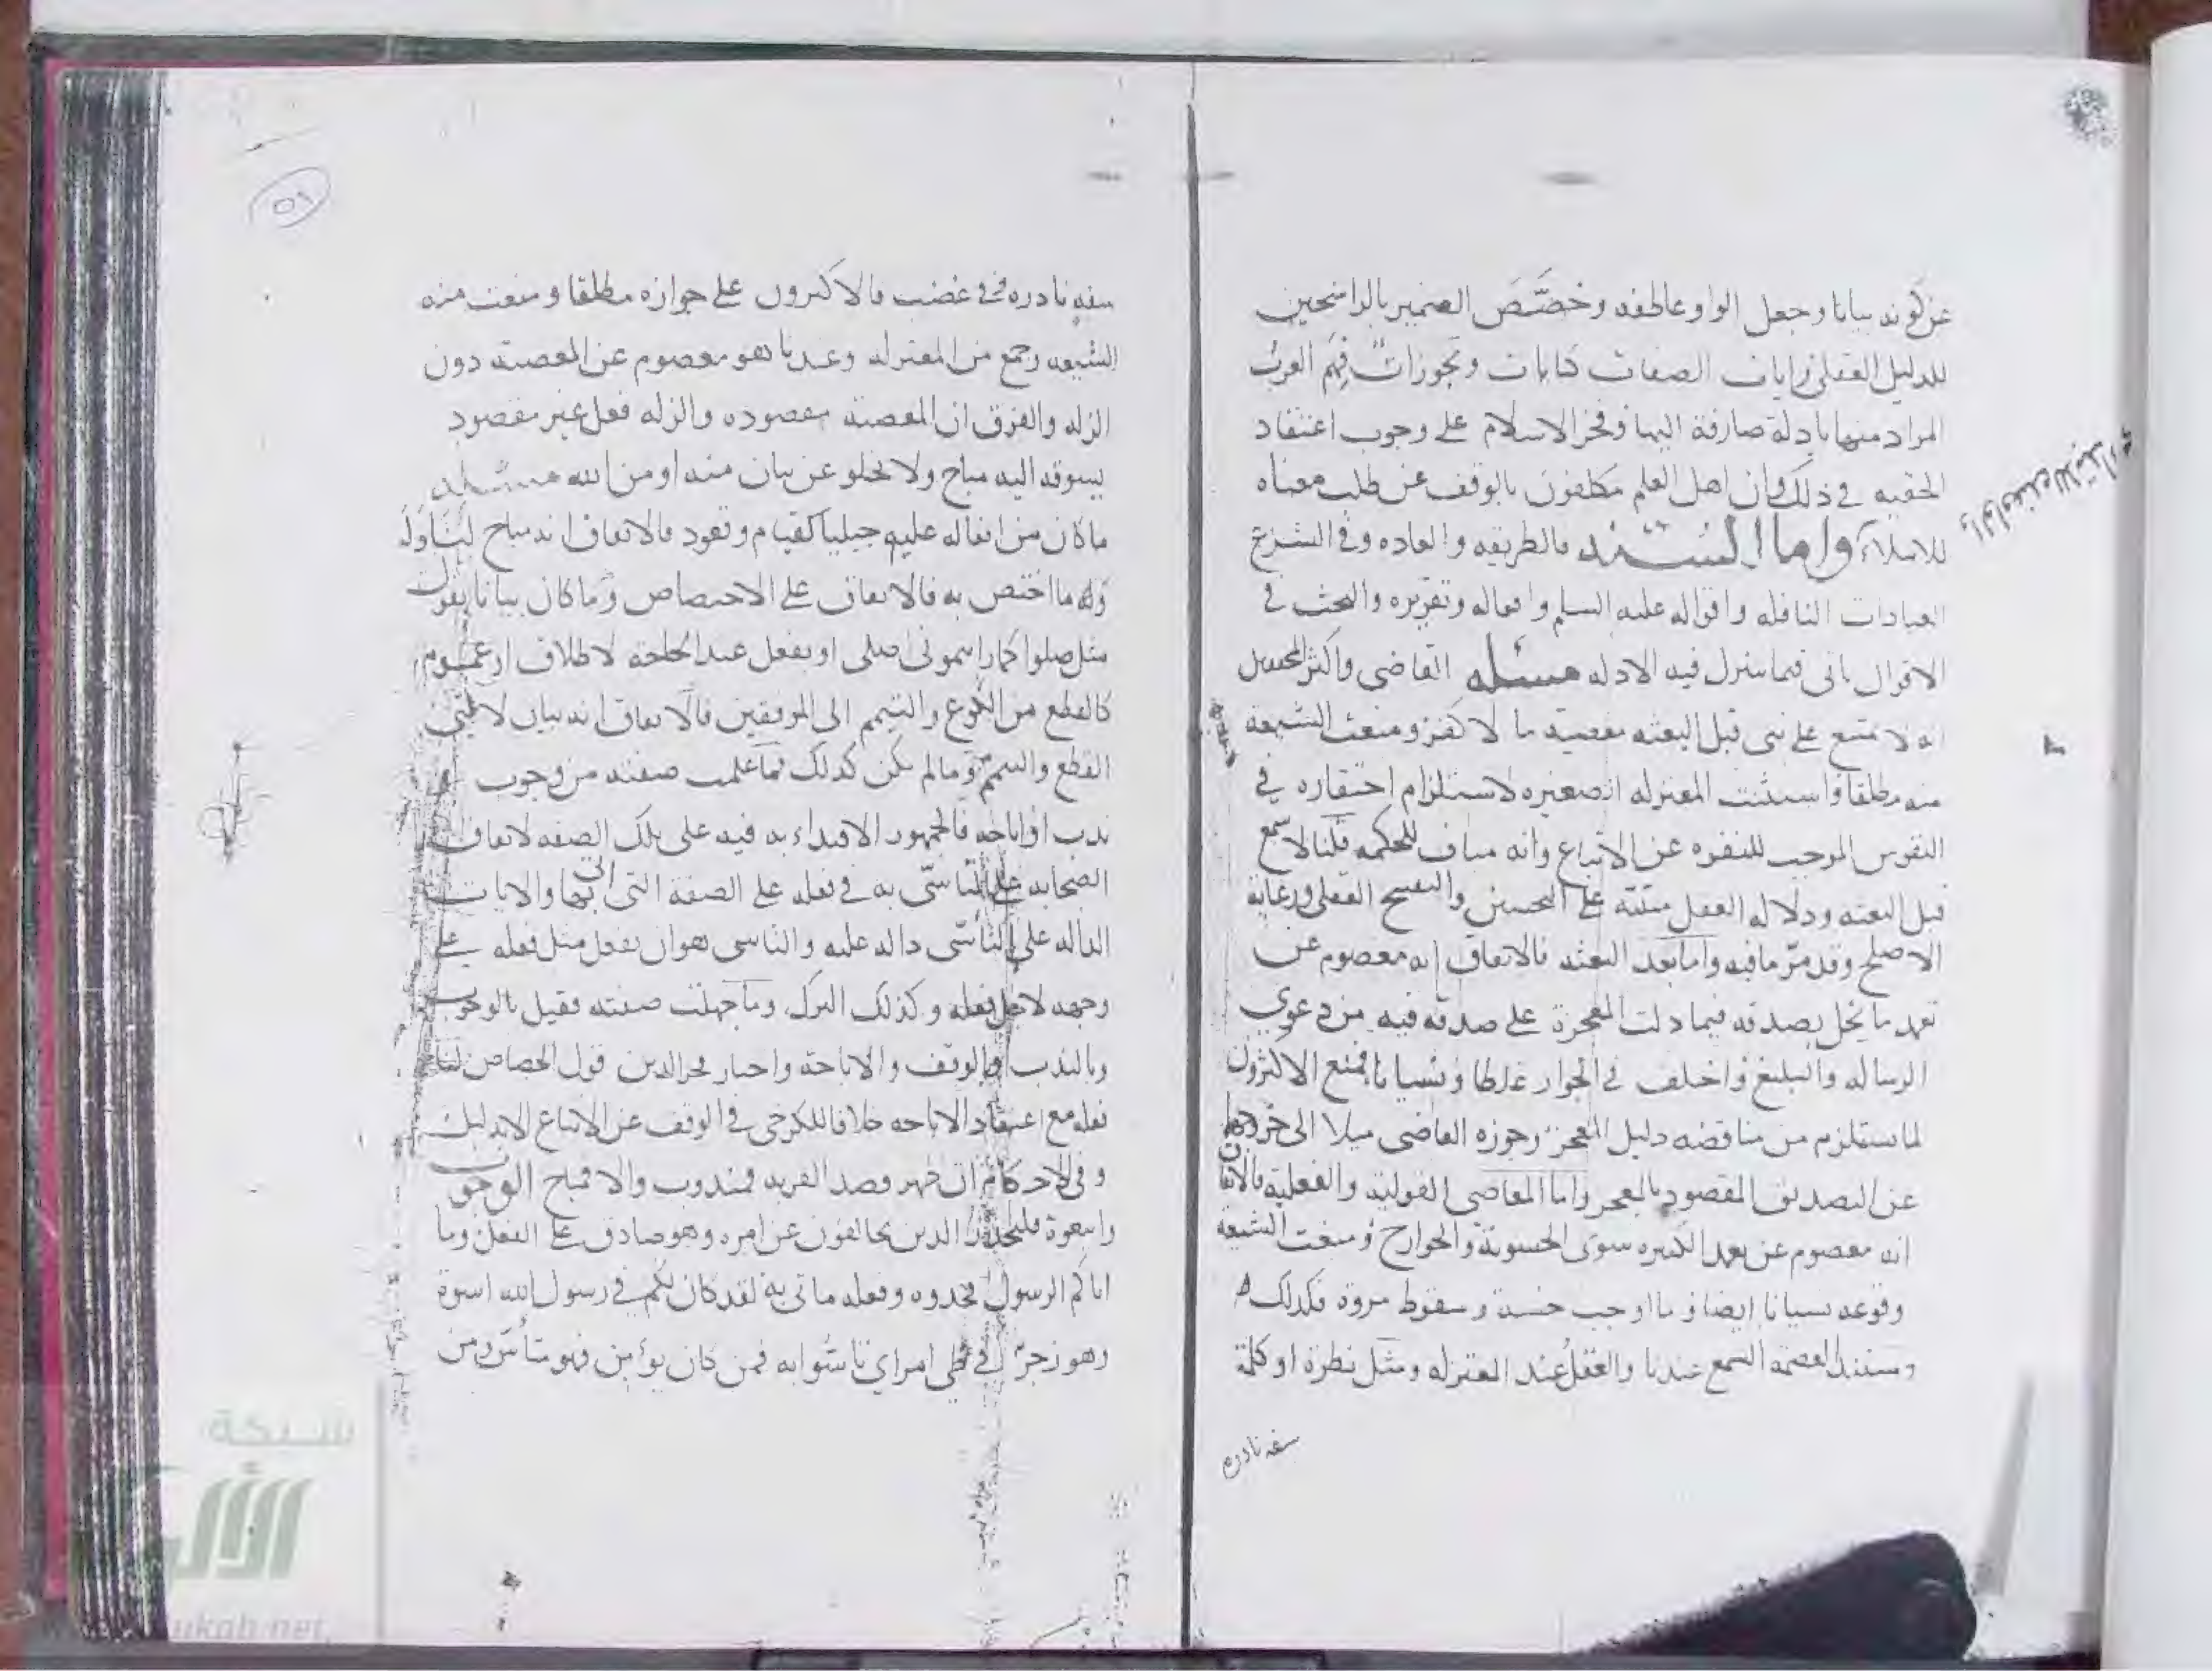 عن كونه بيانا وجعل الواو عاطفه وخصَّصَ الضمير بالراسخين
للدليل العقلى وايات الصفات كنايات وتجوزات فهم العرب
المراد منها بادلة صارفة اليها وفخر الاسلام على وجوب اعتقاد
الحقيه فى ذلك وان اهل العلم مكلفون بالوقف عن طلب معناه
للابتلاء واما السنه فالطريقه والعاده وفى الشرع
العبادات النافله واقواله عليه السلم وافعاله وتقريره والبحث فى
الاقوال ياتى فيما يشترك فيه الادله مسئله القاضى واكثر المحققين
انه لا يمتنع على نبى قبل البعثه معصية ما لا كفر ومنعت الشيعه
منه مطلقا واستثنت المعتزله الصغيره لاستلزام احتقاره فى
النفوس الموجب للنفره عن الاتباع وانه مناف للحكمه قلنا لا سمع
قبل البعثه ودلاله العقل مبنية على التحسين والتقبيح العقلى ورعاية
الاصلح وقد مرّ ما فيه واما بعد البعثه فالاتفاق انه معصوم عن
تعمد ما يخل بصدقه فيما دلت المعجزة على صدقه فيه من دعوى
الرساله والتبليغ واختلف فى الجواز غلطا ونسيانا فمنع الاكثرون
لما يستلزم من مناقضه دليل المعجز وجوزه القاضى ميلا الى خروجهما
عن التصديق المقصود بالمعجز واما المعاصى القولية والفعلية فالاتفاق
انه معصوم عن تعمد الكبيره سوى الحشوية والخوارج ومنعت الشيعة
وقوعه نسيانا ايضا وما اوجب خسة وسقوط مروة فكذلك
ومستند العصمة السمع عندنا والعقل عند المعتزله ومثل نظرة او كلمة
سفه نادره
٥٦
سفهٍ نادره فى غضب فالاكثرون على جوازه مطلقا ومنعت منه
الشيعه وجمع من المعتزله وعندنا هو معصوم عن المعصية دون
الزله والفرق ان المعصية مقصوده والزله فعل غير مقصود
يسوقه اليه مباح ولا يخلو عن بيان منه او من الله مسئله
ما كان من افعاله عليه جبليا كقيام وقعود فالاتفاق انه مباح لنا وله
وما اختص به فالاتفاق على الاختصاص وما كان بيانا بقول
مثل صلوا كما رايتمونى اصلى او بفعل عند الحاجة لاطلاق او عموم
كالقطع من الكوع والتيمم الى المرفقين فالاتفاق انه بيان
القطع والتيمم وما لم يكن كذلك فما علمت صفته من وجوب او
ندب او اباحه فالجمهور الاقتداء به فيه على تلك الصفه لاتفاق
الصحابه على التأسّى به فى فعله على الصفة التى اتى بها والايات
الداله على التأسّى داله عليه والتاسى هو ان يفعل مثل فعله على
وجهه لاجل فعله وكذلك الترك وما جهلت صفته فقيل بالوجوب
وبالندب وبالوقف والاباحة واختار فخر الدين قول الجصاص لنا
فعله مع اعتقاد الاباحه خلافا للكرخى فى الوقف عن الاتباع الا بدليل
وفى الاحكام ان ظهر قصد القربه فمندوب والا فمباح الوجوب
واتبعوه فليحذر الذين يخالفون عن امره وهو صادق على الفعل وما
اتاكم الرسول فخذوه وفعله ما اتى به لقد كان لكم فى رسول الله اسوة
وهو زجرٌ فى طى امر اي تاسّوا به فمن كان يؤمن فهو متأسّ ومن